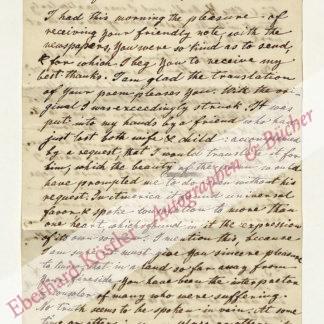 I had this morning the pleasure of
receiving your friendly note, with the
newspapers, You were so kind as to send,
& for which I beg You to receive my
best thanks. I am glad the translation
of your poem pleases You. With the ori-
ginal I was exceedingly struck. It was
put into my hands by a friend who had
just lost both wife & child accompanied
by a request, that I would translate it for
him, which the beauty of the would
have prompted me to do without his
request. In America it found universal
favor, & spoke consolation to more than
one heart, which found in it the expression
of its own I mention this, because
I am sure it must give You sincere pleasure
to know, that in a land so far away from
Your fireside, You have been the interpreter
& consoler of many who were suffering.
No truth seems to be spoken in vain. At some
time or other
Eberhard Köstler Autographen & Bücher